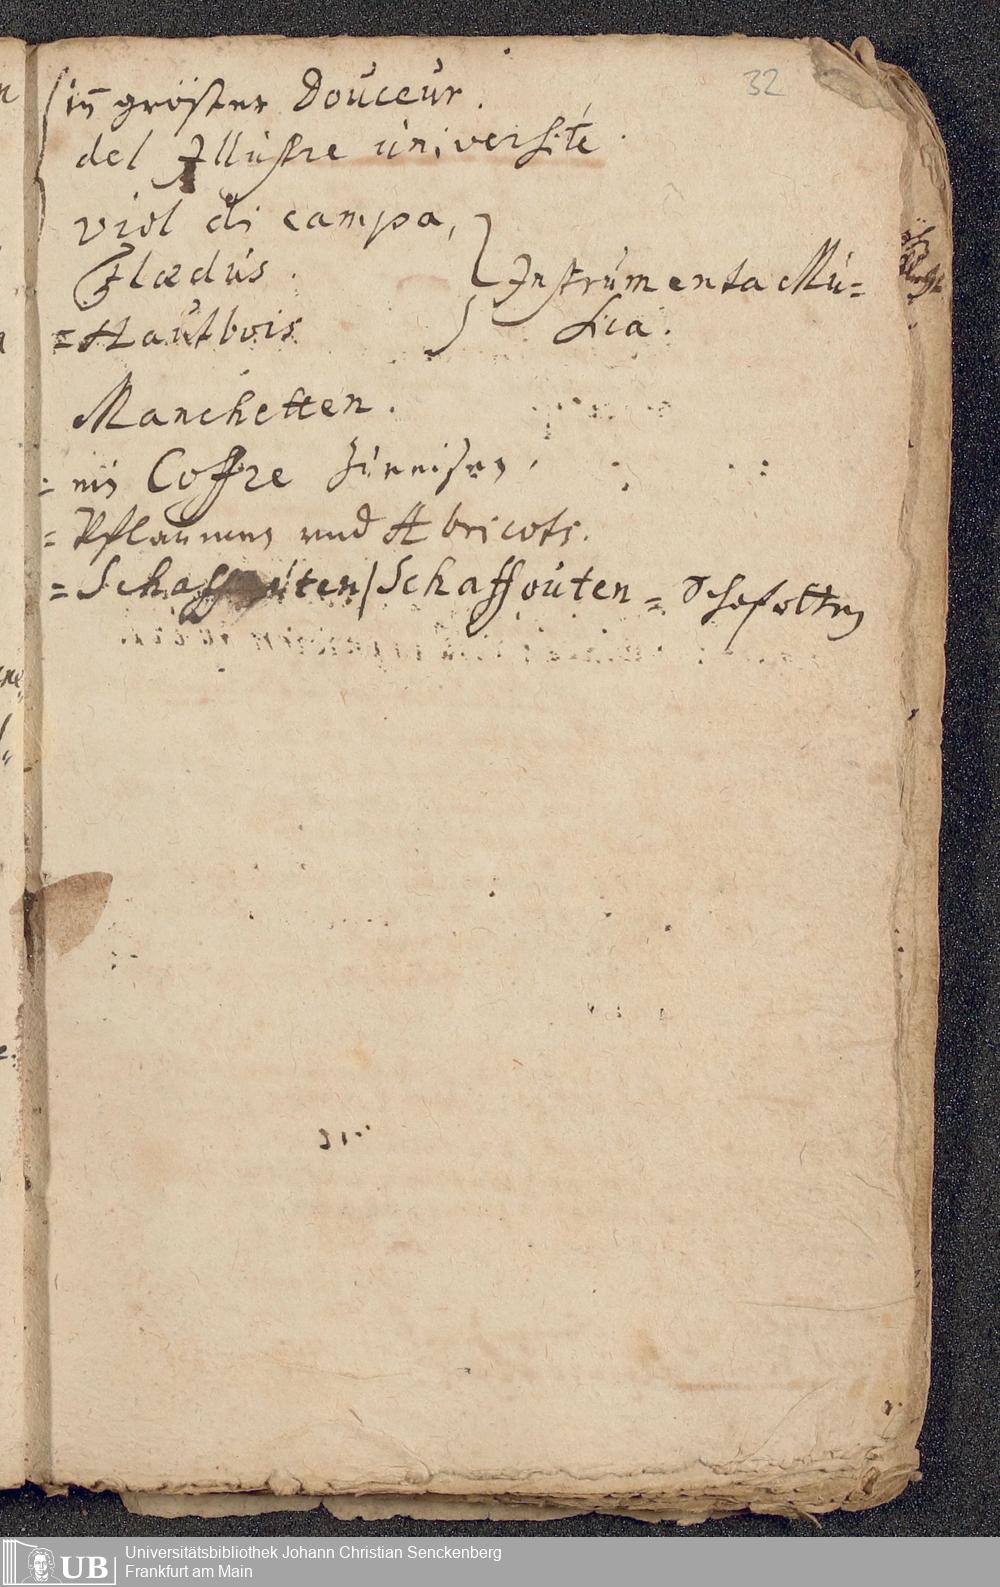 32
in gröster Douceur.
del Illustre université.
viol di campa,
Flædus.
Instrumenta Mu=
sica.
=Hautbois
Manchetten.
= ein Coffre
= Pflaumen und Abricots.
= Schaffouten/Schaffouten = Schafotten
UB
Universitätsbibliothek Johann Christian Senckenberg
Frankfurt am Main